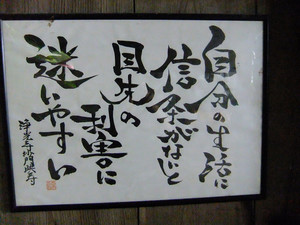 自分の生活に
信条がないと
目先の
利害に
迷いやすい